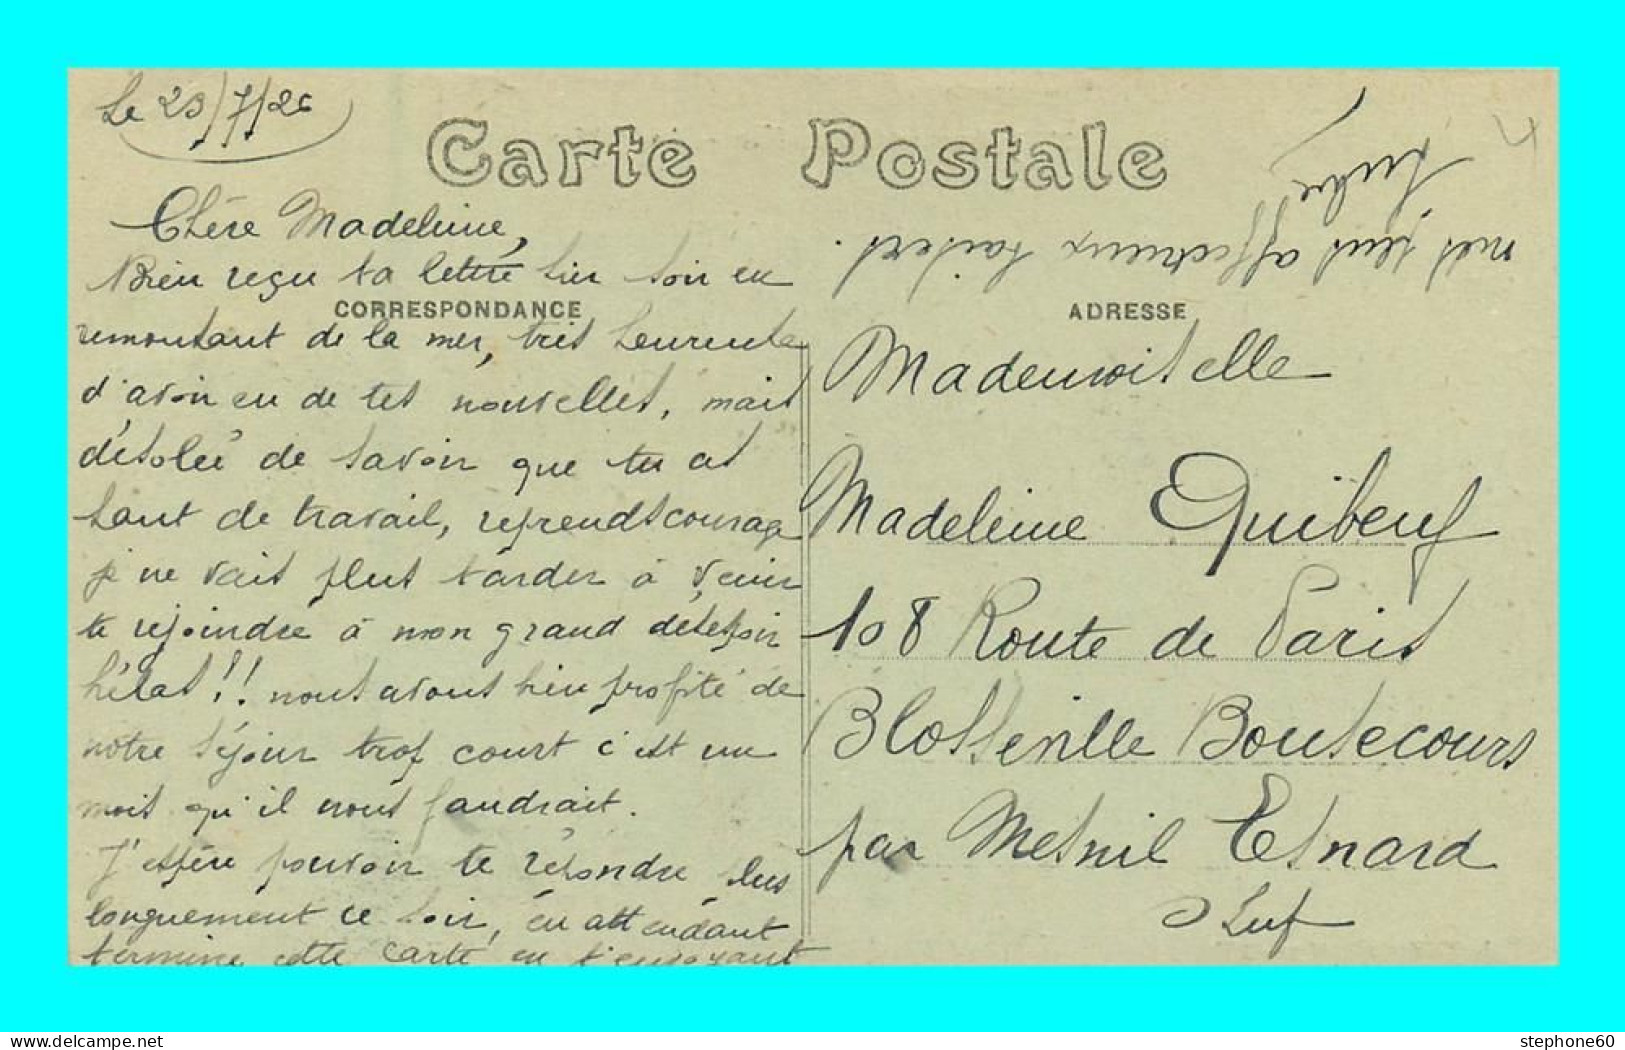 Le 23/7/26
Carte Postale
Chère Madeleine,
Bien reçu ta lettre hier soir en
CORRESPONDANCE
remontant de la mer, très heureuse
d'avoir eu de tes nouvelles, mais
désolée de savoir que tu as
tant de travail, reprends courage
je ne vais plus tarder à venir
te rejoindre à mon grand désespoir
hélas!! nous avons bien profité de
notre séjour trop court c'est un
mois qu'il nous faudrait.
J'espère pouvoir te répondre plus
longuement ce soir, en attendant
termine cette carte en t'envoyant
mes plus affectueux baisers.
ADRESSE
Mademoiselle
Madeleine Quibeuf
108 Route de Paris
Blosseville Bonsecours
par Mesnil Esnard
S Inf
delcampe.net
stephone60